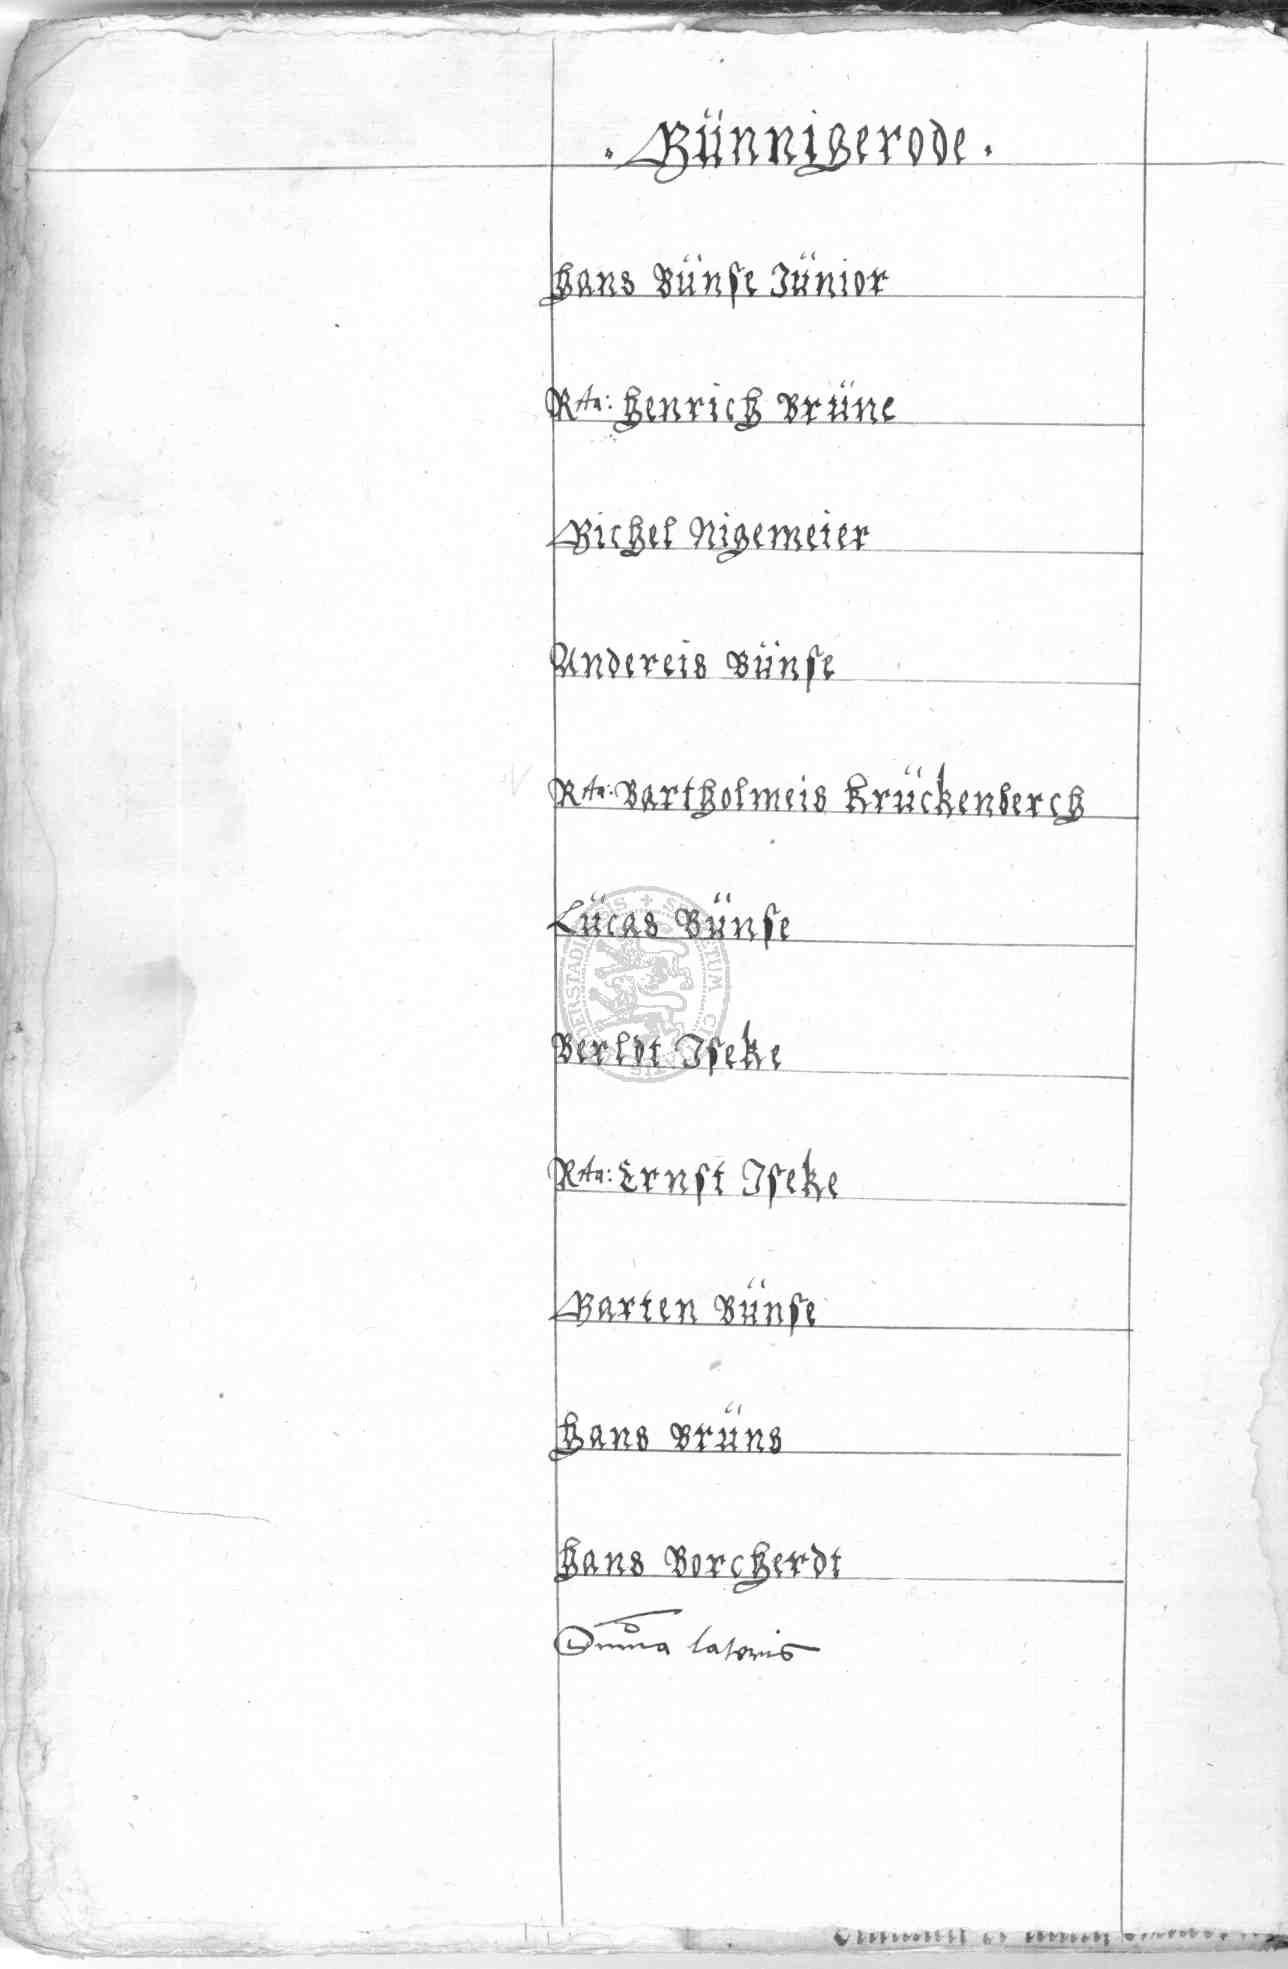 . Münnigerode .
Hans Bünſe Jünior
Rta: Henrich Brüne
Michel Nigemeier
Andereis Bünſe
Rta: Bartholmeis Krückenberch
Lücas Bünſe
Berldt Iſeke
Rta: Ernſt Iſeke
Marten Bünſe
Hans Brüns
Hans Borcherdt
Summa lateris